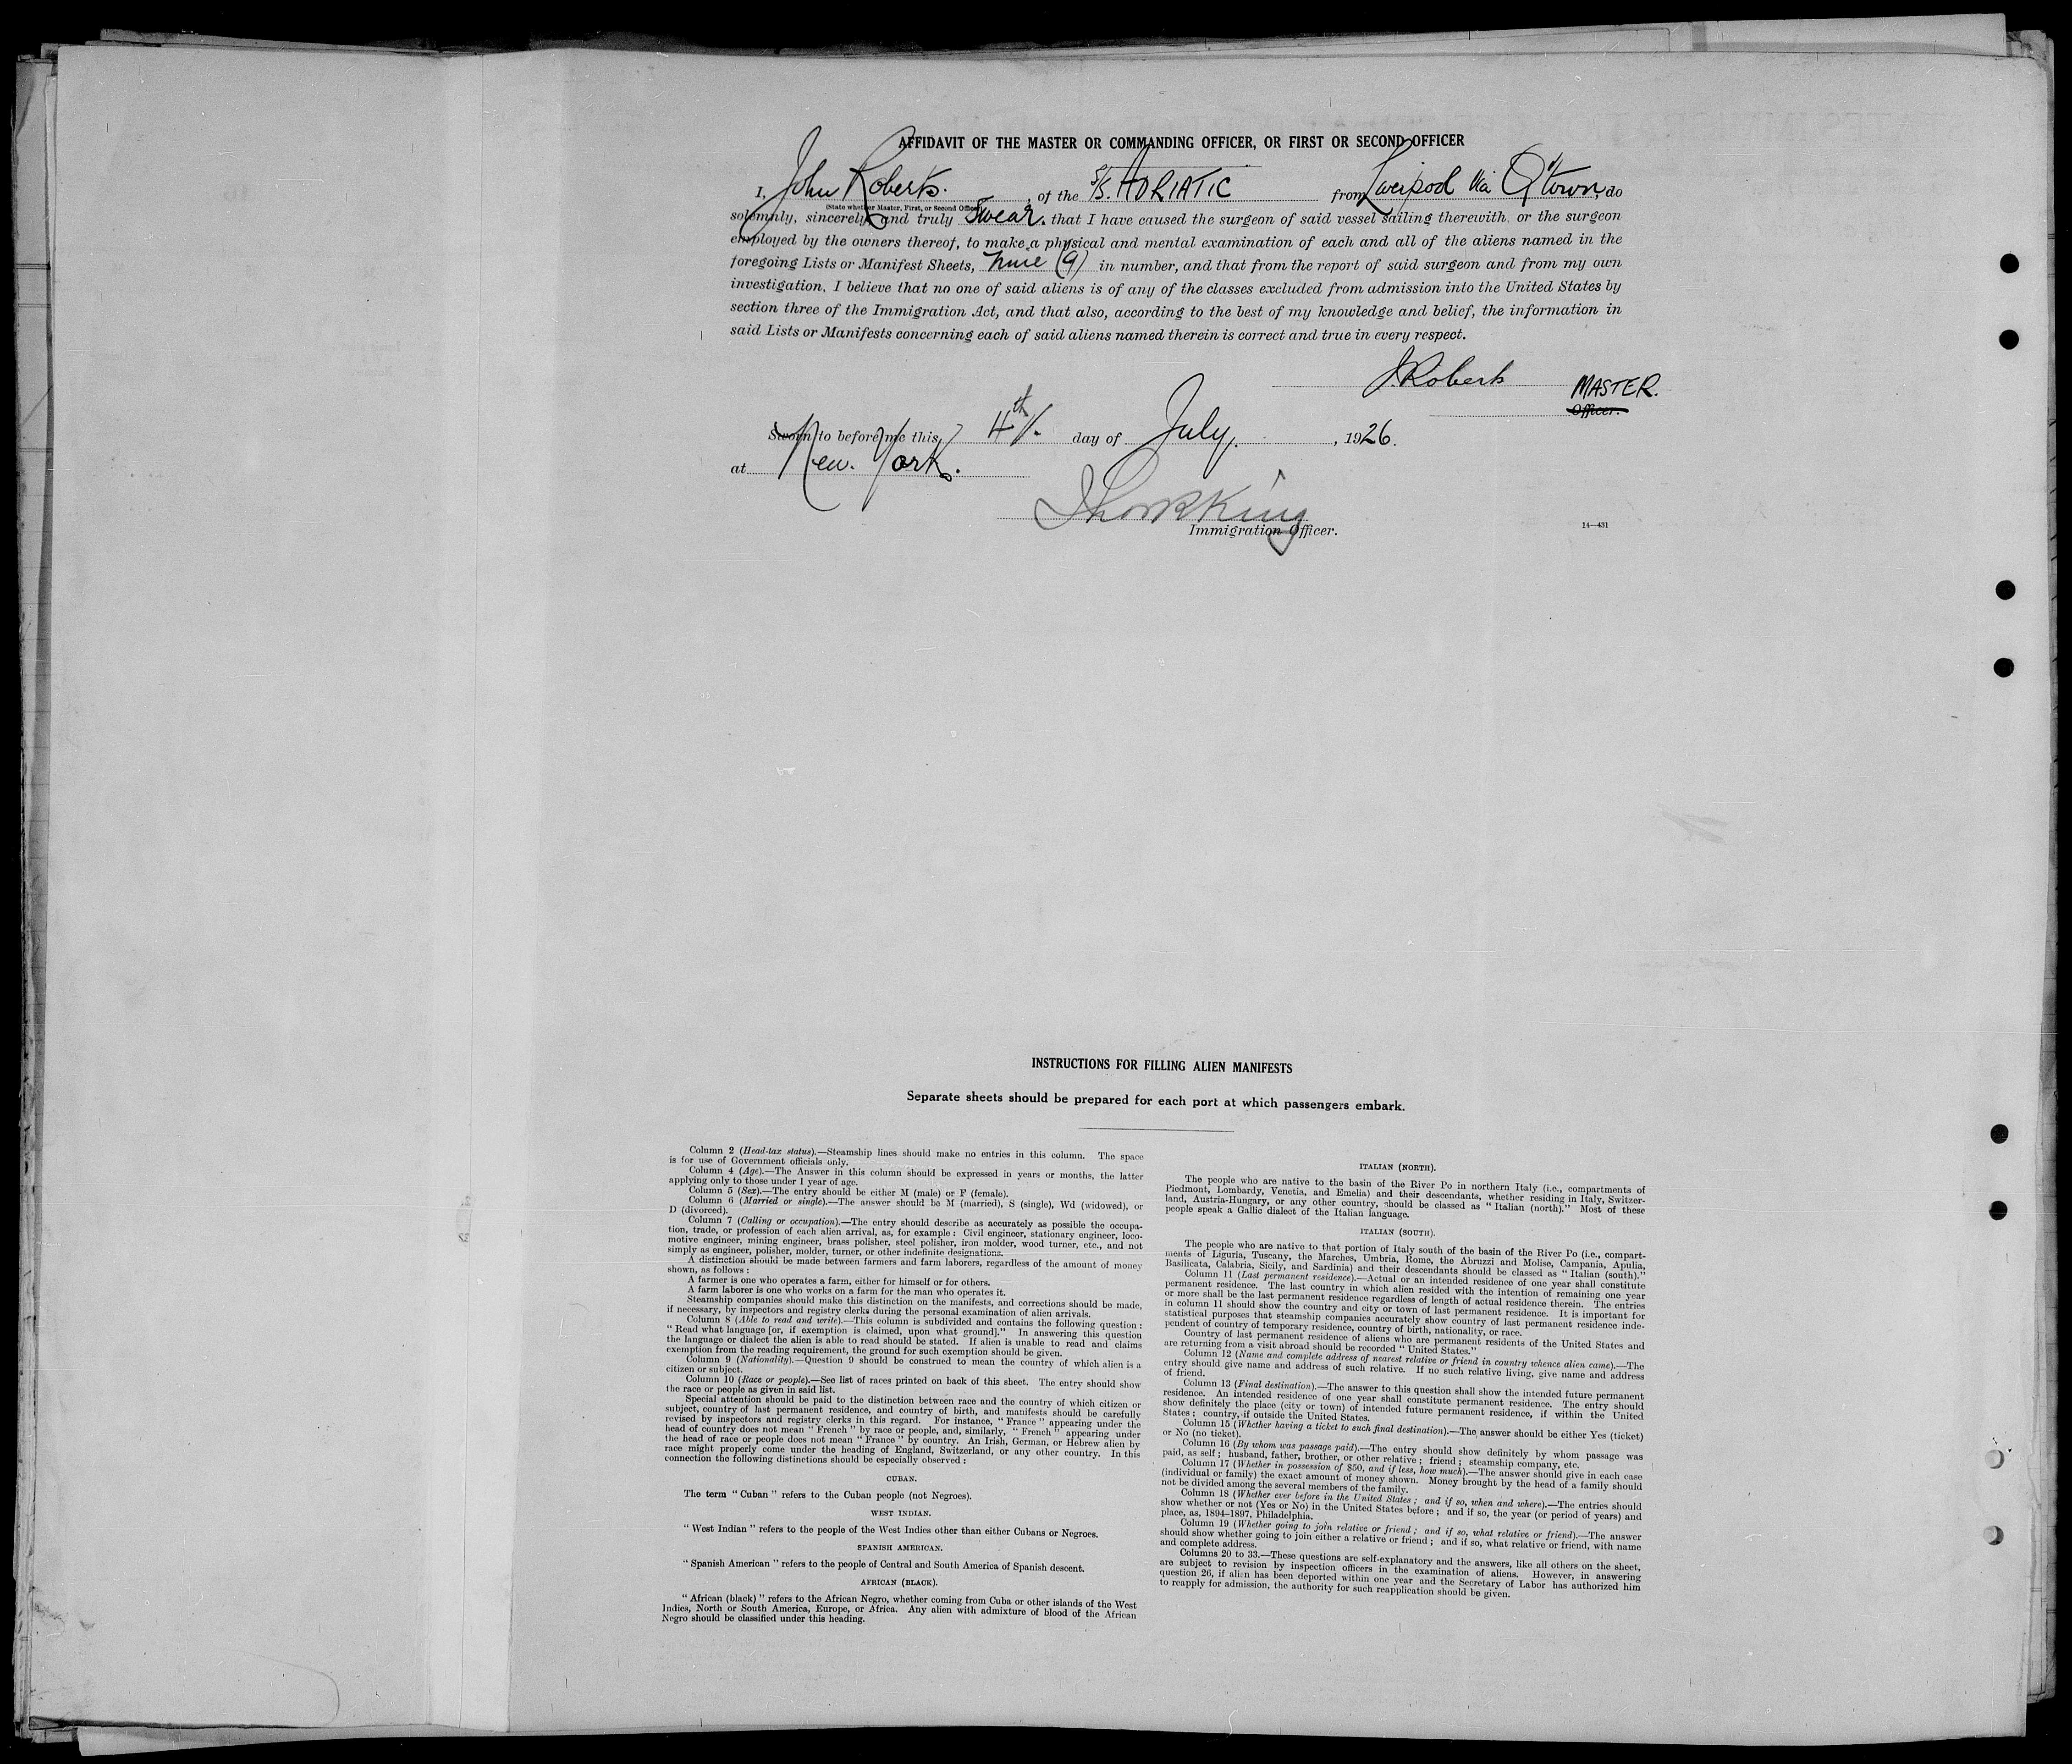 AFFIDAVIT OF THE MASTER OR COMMANDING OFFICER, OR FIRST OR SECOND OFFICER
I, John Roberts. of the S/S. ADRIATIC from Liverpool via Q'town, do
(State whether Master, First, or Second Officer)
solemnly, sincerely and truly Swear. that I have caused the surgeon of said vessel sailing therewith, or the surgeon
employed by the owners thereof, to make a physical and mental examination of each and all of the aliens named in the
foregoing Lists or Manifest Sheets, nine (9) in number, and that from the report of said surgeon and from my own
investigation, I believe that no one of said aliens is of any of the classes excluded from admission into the United States by
section three of the Immigration Act, and that also, according to the best of my knowledge and belief, the information in
said Lists or Manifests concerning each of said aliens named therein is correct and true in every respect.
J. Roberts MASTER.
Officer.
Sworn to before me this 4th day of July, 1926.
at New York.
King
Immigration Officer.
14—431
INSTRUCTIONS FOR FILLING ALIEN MANIFESTS
Separate sheets should be prepared for each port at which passengers embark.
Column 2 (Head-tax status).—Steamship lines should make no entries in this column. The space
is for use of Government officials only.
Column 4 (Age).—The Answer in this column should be expressed in years or months, the latter
applying only to those under 1 year of age.
Column 5 (Sex).—The entry should be either M (male) or F (female).
Column 6 (Married or single).—The answer should be M (married), S (single), Wd (widowed), or
D (divorced).
Column 7 (Calling or occupation).—The entry should describe as accurately as possible the occupa-
tion, trade, or profession of each alien arrival, as, for example : Civil engineer, stationary engineer, loco-
motive engineer, mining engineer, brass polisher, steel polisher, iron molder, wood turner, etc., and not
simply as engineer, polisher, molder, turner, or other indefinite designations.
A distinction should be made between farmers and farm laborers, regardless of the amount of money
shown, as follows :
A farmer is one who operates a farm, either for himself or for others.
A farm laborer is one who works on a farm for the man who operates it.
Steamship companies should make this distinction on the manifests, and corrections should be made,
if necessary, by inspectors and registry clerks during the personal examination of alien arrivals.
Column 8 (Able to read and write).—This column is subdivided and contains the following question :
“ Read what language [or, if exemption is claimed, upon what ground].” In answering this question
the language or dialect the alien is able to read should be stated. If alien is unable to read and claims
exemption from the reading requirement, the ground for such exemption should be given.
Column 9 (Nationality).—Question 9 should be construed to mean the country of which alien is a
citizen or subject.
Column 10 (Race or people).—See list of races printed on back of this sheet. The entry should show
the race or people as given in said list.
Special attention should be paid to the distinction between race and the country of which citizen or
subject, country of last permanent residence, and country of birth, and manifests should be carefully
revised by inspectors and registry clerks in this regard. For instance, “ France ” appearing under the
head of country does not mean “ French ” by race or people, and, similarly, “ French ” appearing under
the head of race or people does not mean “ France ” by country. An Irish, German, or Hebrew alien by
race might properly come under the heading of England, Switzerland, or any other country. In this
connection the following distinctions should be especially observed :
CUBAN.
The term “ Cuban ” refers to the Cuban people (not Negroes).
WEST INDIAN.
“ West Indian ” refers to the people of the West Indies other than either Cubans or Negroes.
SPANISH AMERICAN.
“ Spanish American ” refers to the people of Central and South America of Spanish descent.
AFRICAN (BLACK).
“ African (black) ” refers to the African Negro, whether coming from Cuba or other islands of the West
Indies, North or South America, Europe, or Africa. Any alien with admixture of blood of the African
Negro should be classified under this heading.
ITALIAN (NORTH).
The people who are native to the basin of the River Po in northern Italy (i.e., compartments of
Piedmont, Lombardy, Venetia, and Emelia) and their descendants, whether residing in Italy, Switzer-
land, Austria-Hungary, or any other country, should be classed as “ Italian (north).” Most of these
people speak a Gallic dialect of the Italian language.
ITALIAN (SOUTH).
The people who are native to that portion of Italy south of the basin of the River Po (i.e., compart-
ments of Liguria, Tuscany, the Marches, Umbria, Rome, the Abruzzi and Molise, Campania, Apulia,
Basilicata, Calabria, Sicily, and Sardinia) and their descendants should be classed as “ Italian (south).”
Column 11 (Last permanent residence).—Actual or an intended residence of one year shall constitute
permanent residence. The last country in which alien resided with the intention of remaining one year
or more shall be the last permanent residence regardless of length of actual residence therein. The entries
in column 11 should show the country and city or town of last permanent residence. It is important for
statistical purposes that steamship companies accurately show country of last permanent residence inde-
pendent of country of temporary residence, country of birth, nationality, or race.
Country of last permanent residence of aliens who are permanent residents of the United States and
are returning from a visit abroad should be recorded “ United States.”
Column 12 (Name and complete address of nearest relative or friend in country whence alien came).—The
entry should give name and address of such relative. If no such relative living, give name and address
of friend.
Column 13 (Final destination).—The answer to this question shall show the intended future permanent
residence. An intended residence of one year shall constitute permanent residence. The entry should
show definitely the place (city or town) of intended future permanent residence, if within the United
States ; country, if outside the United States.
Column 15 (Whether having a ticket to such final destination).—The answer should be either Yes (ticket)
or No (no ticket).
Column 16 (By whom was passage paid).—The entry should show definitely by whom passage was
paid, as self ; husband, father, brother, or other relative ; friend ; steamship company, etc.
Column 17 (Whether in possession of $50, and if less, how much).—The answer should give in each case
(individual or family) the exact amount of money shown. Money brought by the head of a family should
not be divided among the several members of the family.
Column 18 (Whether ever before in the United States ; and if so, when and where).—The entries should
show whether or not (Yes or No) in the United States before ; and if so, the year (or period of years) and
place, as, 1894–1897, Philadelphia.
Column 19 (Whether going to join relative or friend ; and if so, what relative or friend).—The answer
should show whether going to join either a relative or friend ; and if so, what relative or friend, with name
and complete address.
Columns 20 to 33.—These questions are self-explanatory and the answers, like all others on the sheet,
are subject to revision by inspection officers in the examination of aliens. However, in answering
question 26, if alien has been deported within one year and the Secretary of Labor has authorized him
to reapply for admission, the authority for such reapplication should be given.